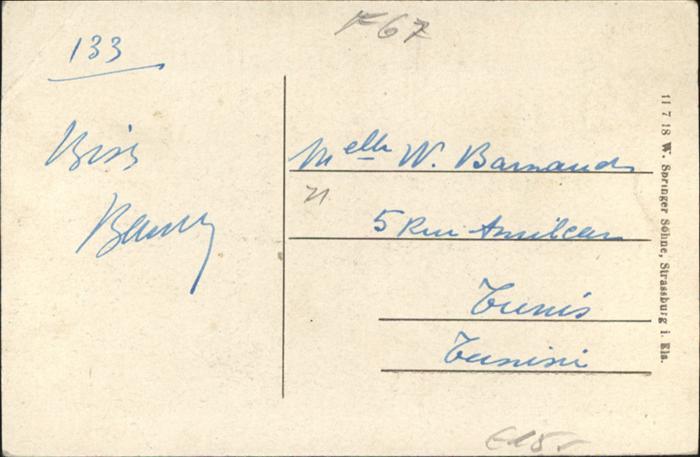 F67
133
Bises
Melle W. Barnaud
5 Rue Amilcar
Tunis
Tunisie
11 7 18 W. Springer Söhne, Strassburg i. Els.